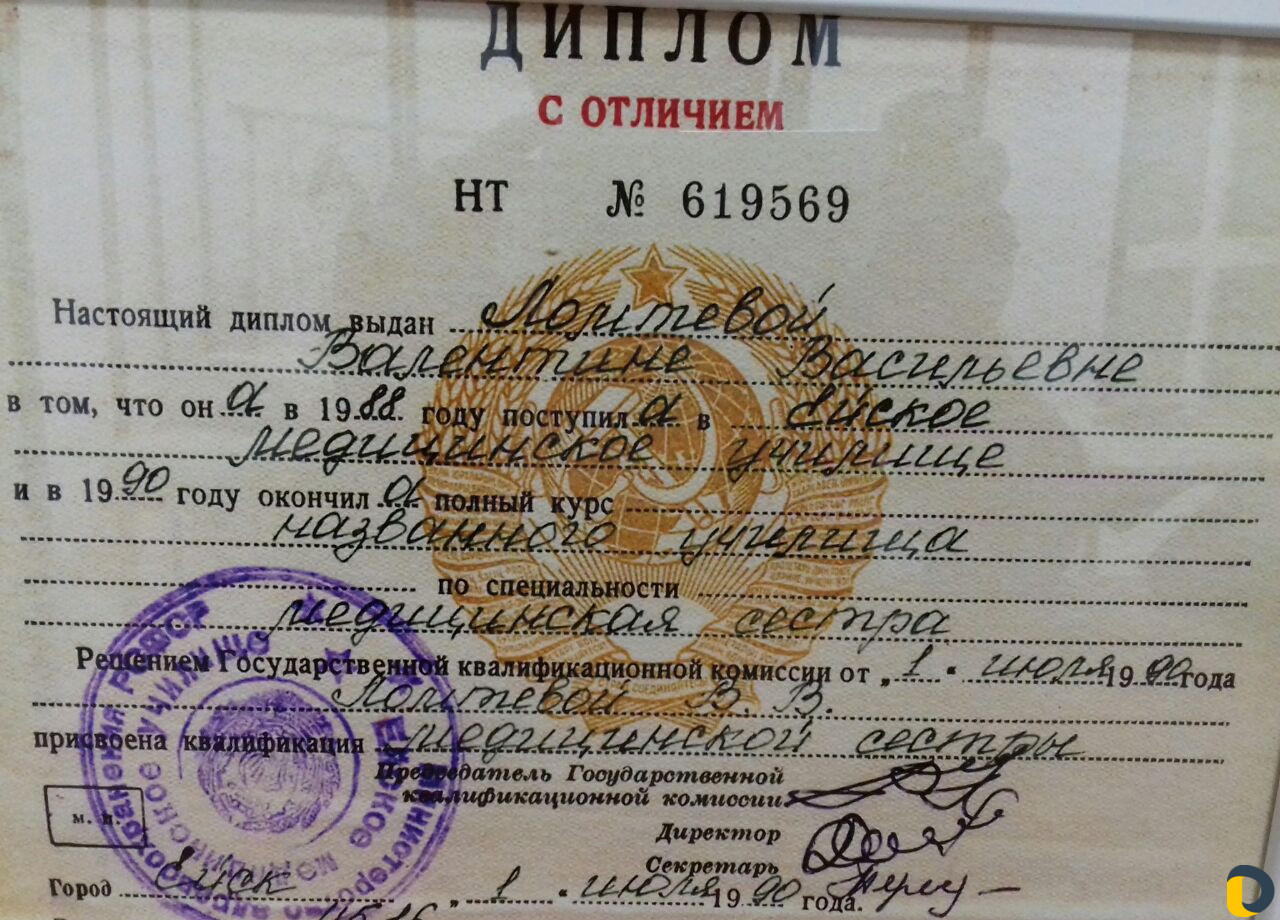 ДИПЛОМ
С ОТЛИЧИЕМ
НТ № 619569
Настоящий диплом выдан Лоптевой
Валентине Васильевне
в том, что он а в 1988 году поступил а в Ейское
медицинское училище
и в 1990 году окончил а полный курс
названного училища
по специальности
медицинская сестра
Решением Государственной квалификационной комиссии от „ 1 " июля 1990 года
Лоптевой В. В.
присвоена квалификация медицинской сестры
Председатель Государственной
квалификационной комиссии
Директор
Секретарь
м. п.
Город Ейск „ 1 " июля 1990 года.